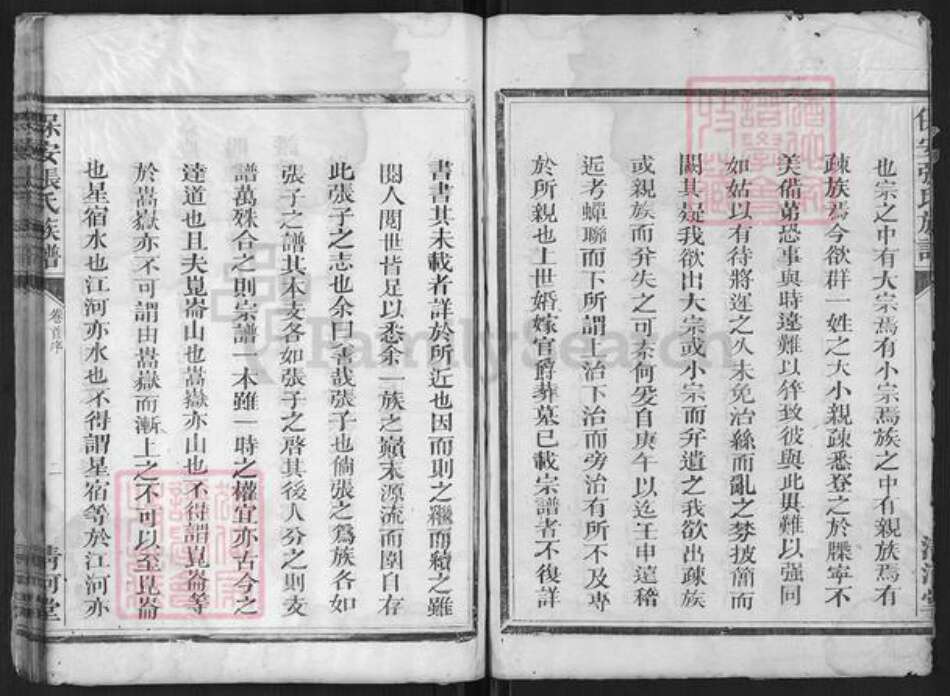 也宗之中有大宗焉有小宗焉族之中有親族焉有
疎族焉今欲群一姓之大小親疎悉登之於牒寧不
美備第恐事與時違難以猝致彼與此異難以强同
如姑以有待將遲之久未免治絲而亂之棼披簡而
闕其疑我欲出大宗或小宗而弁遺之我欲出疎族
或親族而并失之可奈何爰自庚午以迄壬申遠稽
近考蟬聯而下所謂上治下治而旁治有所不及專
於所親也上世婚嫁官爵葬墓已載宗譜者不復詳
書書其未載者詳於所近也因而則之繼而續之雖
閱人閱世皆足以悉余一族之巔末源流而圍自存
此張子之志也余曰善哉張子也倘張之爲族各如
張子之譜其本支各如張子之啓其後人分之則支
譜萬殊合之則宗譜一本雖一時之權宜亦古今之
達道也且夫崑崙山也嵩嶽亦山也不得謂崑崙等
於嵩嶽亦不可謂由嵩嶽而漸上之不可以至崑崙
也星宿水也江河亦水也不得謂星宿等於江河亦
保安張氏族譜
卷首序
二
清河堂
FamilySearch